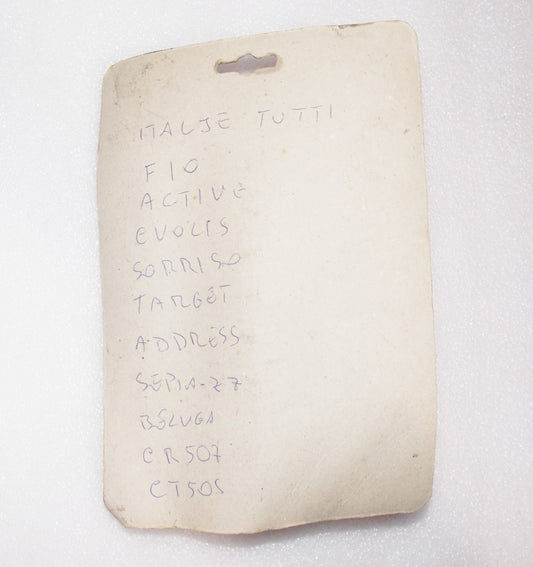 ITALJE TUTTI
F10
ACTIVE
EVOLIS
SORRISO
TARGET
ADDRESS
SEPIA-ZZ
BELUGA
CR507
CT50S